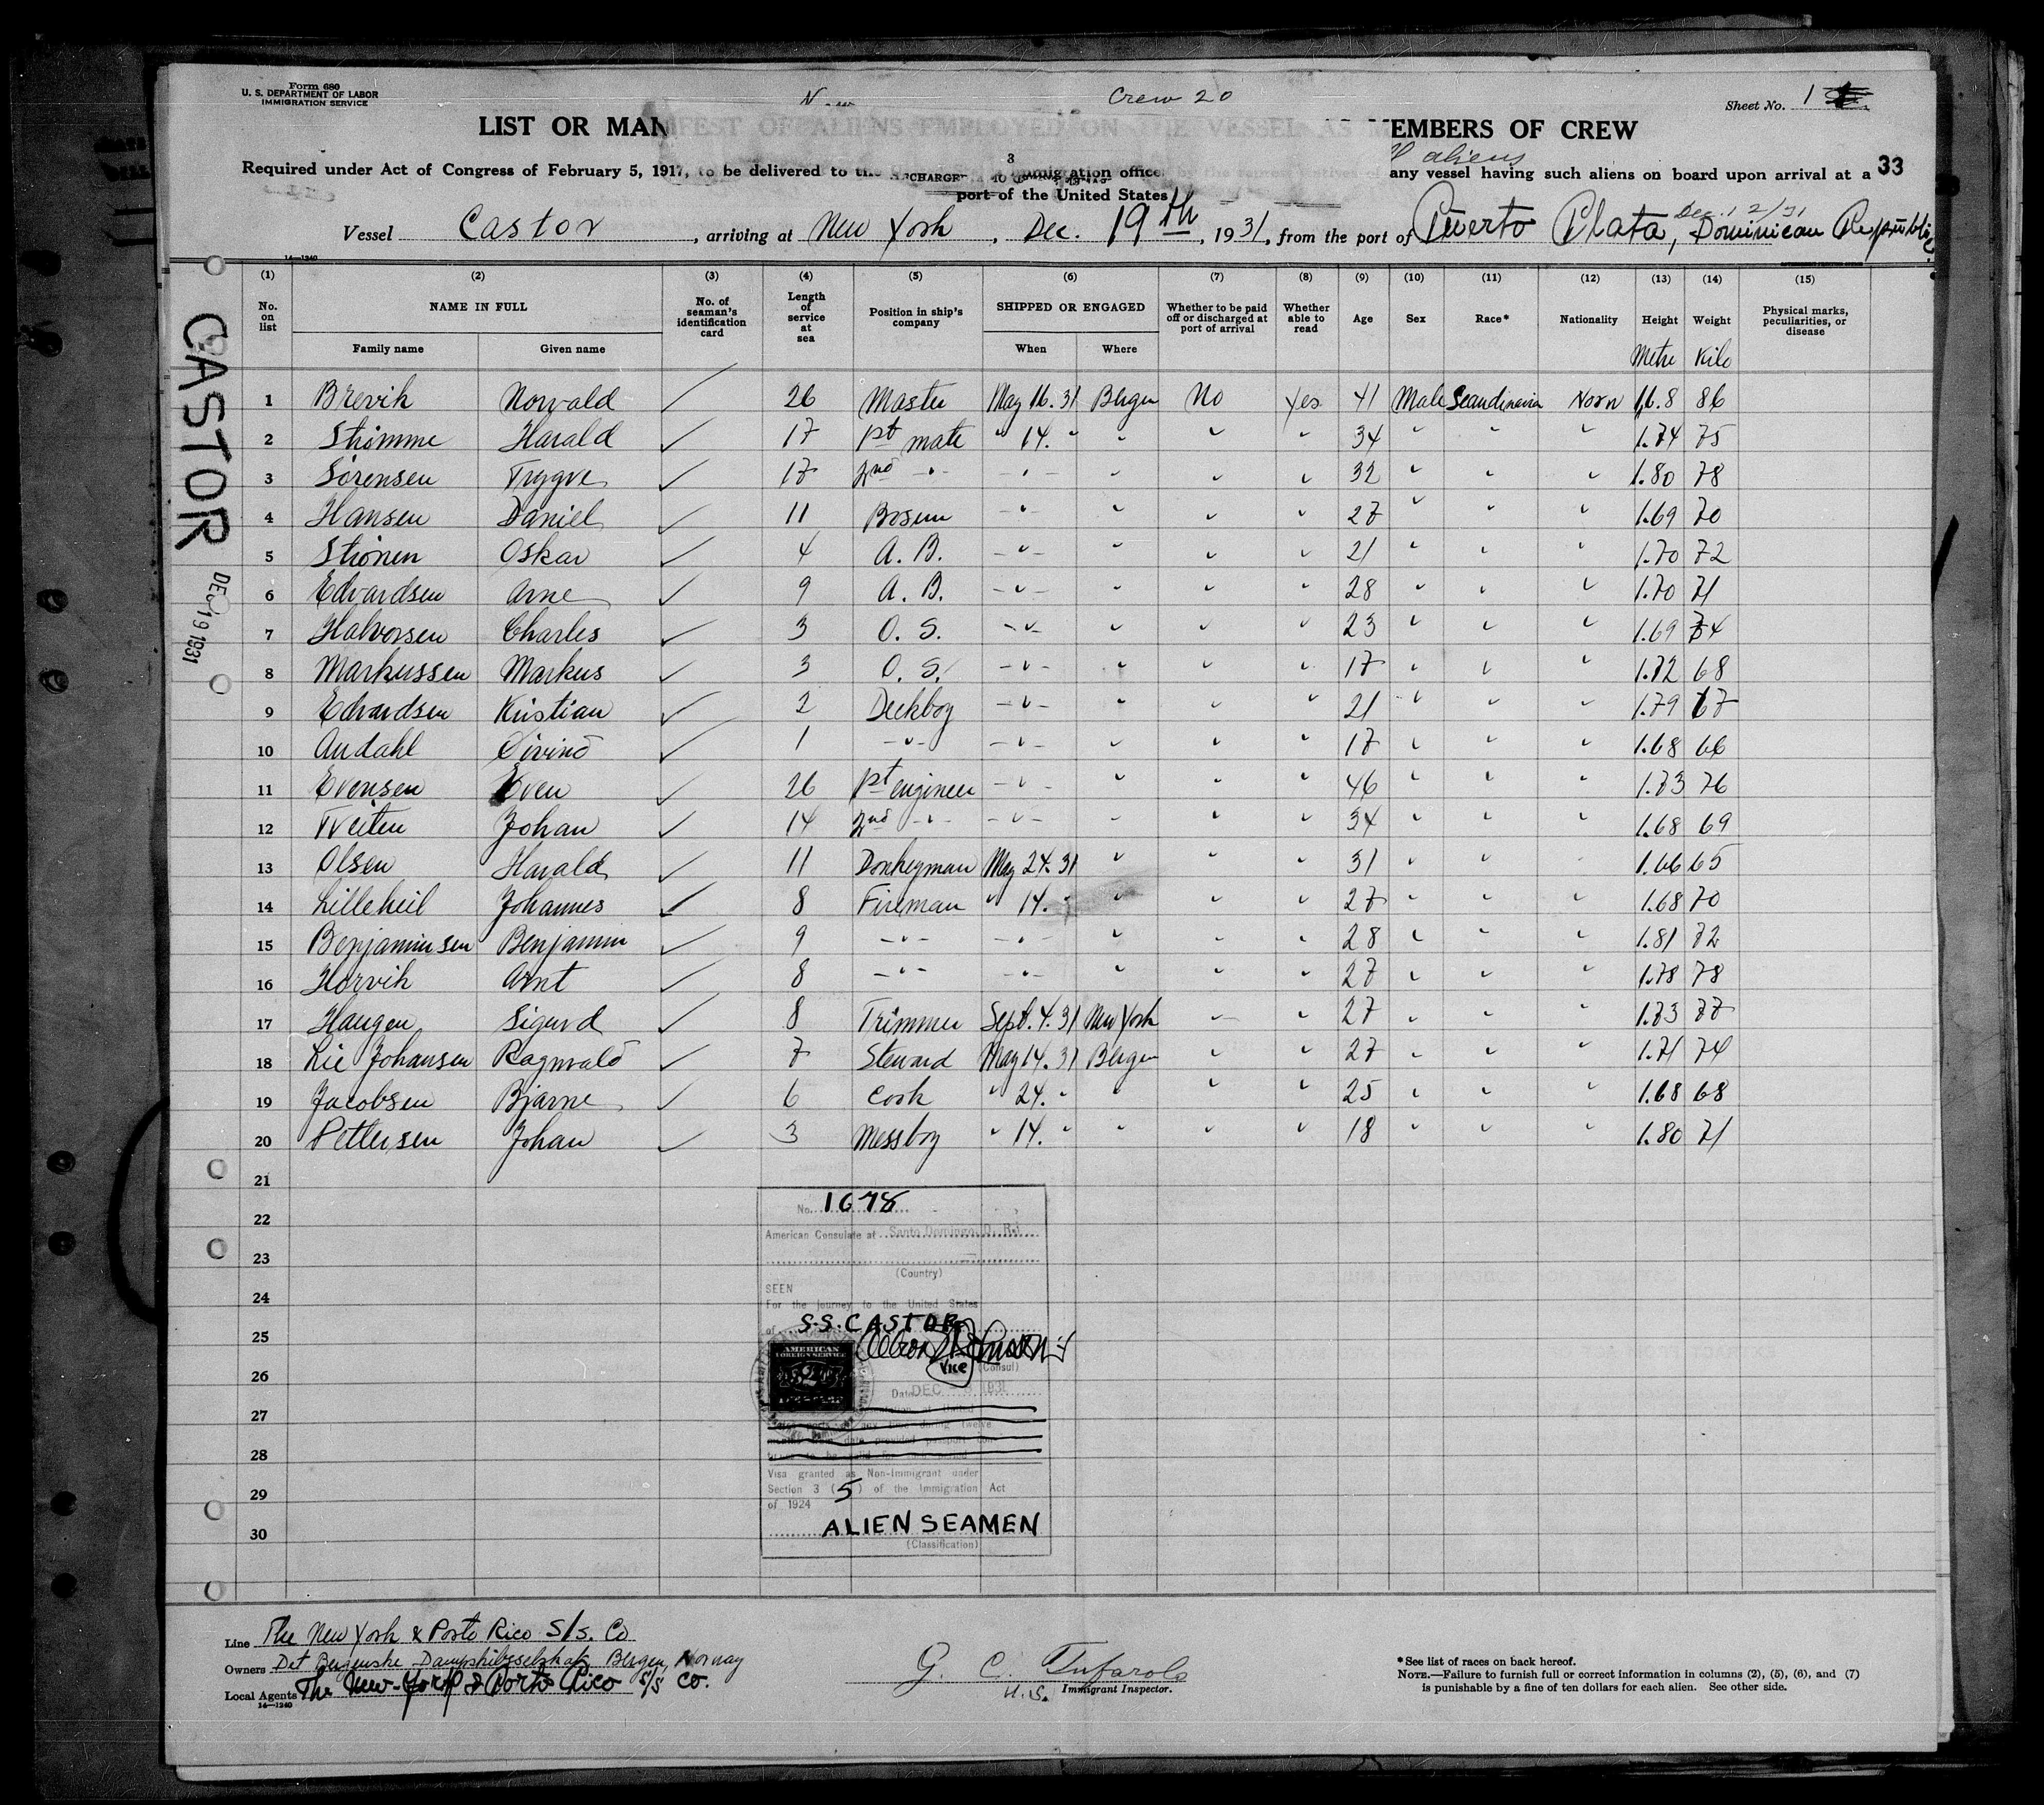 Form 680
U. S. DEPARTMENT OF LABOR
IMMIGRATION SERVICE
Crew 20
Sheet No. 1
LIST OR MANIFEST OF ALIENS EMPLOYED ON THE VESSEL AS MEMBERS OF CREW
aliens
Required under Act of Congress of February 5, 1917, to be delivered to the immigration officer by the representatives of any vessel having such aliens on board upon arrival at a
33
port of the United States
Dec. 12/31
Vessel Castor, arriving at New York, Dec. 19th, 1931, from the port of Puerto Plata, Dominican Republic
14—1240
(1) (2) (3) (4) (5) (6) (7) (8) (9) (10) (11) (12) (13) (14) (15)
No. on list NAME IN FULL No. of seaman's identification card Length of service at sea Position in ship's company SHIPPED OR ENGAGED Whether to be paid off or discharged at port of arrival Whether able to read Age Sex Race* Nationality Height Weight Physical marks, peculiarities, or disease
Family name Given name When Where Metre Kilo
1 Brevik Norvald ✓ 26 Master May 16. 31 Bergen No Yes 41 Male Scandinavia Norw 1.68 86
2 Strömme Harald ✓ 17 1st mate " 14. " " " " 34 " " " 1.74 75
3 Sörensen Trygve ✓ 17 2nd -"- -"- " " " 32 " " " 1.80 78
4 Hansen Daniel ✓ 11 Bosun -"- " " " 27 " " " 1.69 70
5 Strönen Oskar ✓ 4 A. B. -"- " " " 21 " " " 1.70 72
6 Edvardsen Arne ✓ 9 A. B. -"- " " " 28 " " " 1.70 71
7 Halvorsen Charles ✓ 3 O. S. -"- " " " 23 " " " 1.69 74
8 Markussen Markus ✓ 3 O. S. -"- " " " 17 " " " 1.72 68
9 Edvardsen Kristian ✓ 2 Deckboy -"- " " " 21 " " " 1.79 67
10 Andahl Öivind ✓ 1 -"- -"- " " " 17 " " " 1.68 66
11 Evensen Even ✓ 26 1st engineer -"- " " " 46 " " " 1.73 76
12 Tveiten Johan ✓ 14 2nd -"- -"- " " " 34 " " " 1.68 69
13 Olsen Harald ✓ 11 Donkeyman May 24. 31 " " " 31 " " " 1.66 65
14 Lilleheil Johannes ✓ 8 Fireman " 14. " " " " 27 " " " 1.68 70
15 Benjaminsen Benjamin ✓ 9 -"- -"- " " " 28 " " " 1.81 72
16 Horvik Arnt ✓ 8 -"- -"- " " " 27 " " " 1.78 78
17 Haugen Sigurd ✓ 8 Trimmer Sept. 4. 31 New York " " 27 " " " 1.73 77
18 Lie Johansen Ragnvald ✓ 7 Steward May 14. 31 Bergen " " 27 " " " 1.71 74
19 Jacobsen Bjarne ✓ 6 Cook " 24. " " " " 25 " " " 1.68 68
20 Pettersen Johan ✓ 3 Messboy " 14. " " " " 18 " " " 1.80 71
21
22
23
24
25
26
27
28
29
30
CASTOR
DEC 19 1931
No. 1678
American Consulate at Santo Domingo, D. R.
(Country)
SEEN
For the journey to the United States
of S.S. CASTOR
AMERICAN
FOREIGN SERVICE
Vice (Consul)
Date DEC 1931
Visa granted as Non-Immigrant under
Section 3 (5) of the Immigration Act
of 1924
ALIEN SEAMEN
(Classification)
Line The New York & Porto Rico S/S. Co
Owners Det Bergenske Dampskibsselskab Bergen, Norway
Local Agents The New-York & Porto Rico S/S Co.
14—1240
G. C. Tufarolo
U.S. Immigrant Inspector.
*See list of races on back hereof.
NOTE.—Failure to furnish full or correct information in columns (2), (5), (6), and (7)
is punishable by a fine of ten dollars for each alien. See other side.